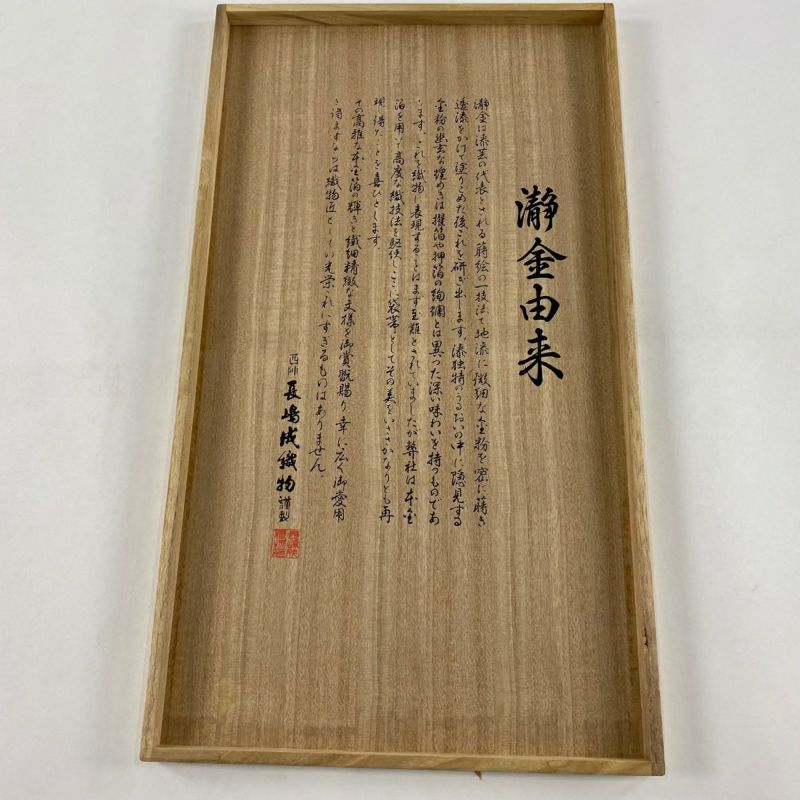 瀞金由来
瀞金は漆芸の代表とされる蒔絵の一技法で地漆に微細な金粉を密に蒔き
透漆をかけて塗りこめた後これを研ぎ出します。漆独特のうるおいの中に隠見する
金粉の幽玄な煌めきは摺箔や押箔の絢爛とは異った深い味わいを持つものであ
ります。これを織物に表現することはまず至難とされていましたが弊社は本金
箔を用いて高度な織技法を駆使しここに袋帯としてその美をいささかなりとも再
現し得たことを喜びとします。
その高雅な本金箔の輝きと繊細精緻な文様を御賞翫賜り幸に広く御愛用
を得ますならば織物匠としてい光栄これにすぎるものはありません
西陣 長嶋成織物 謹製